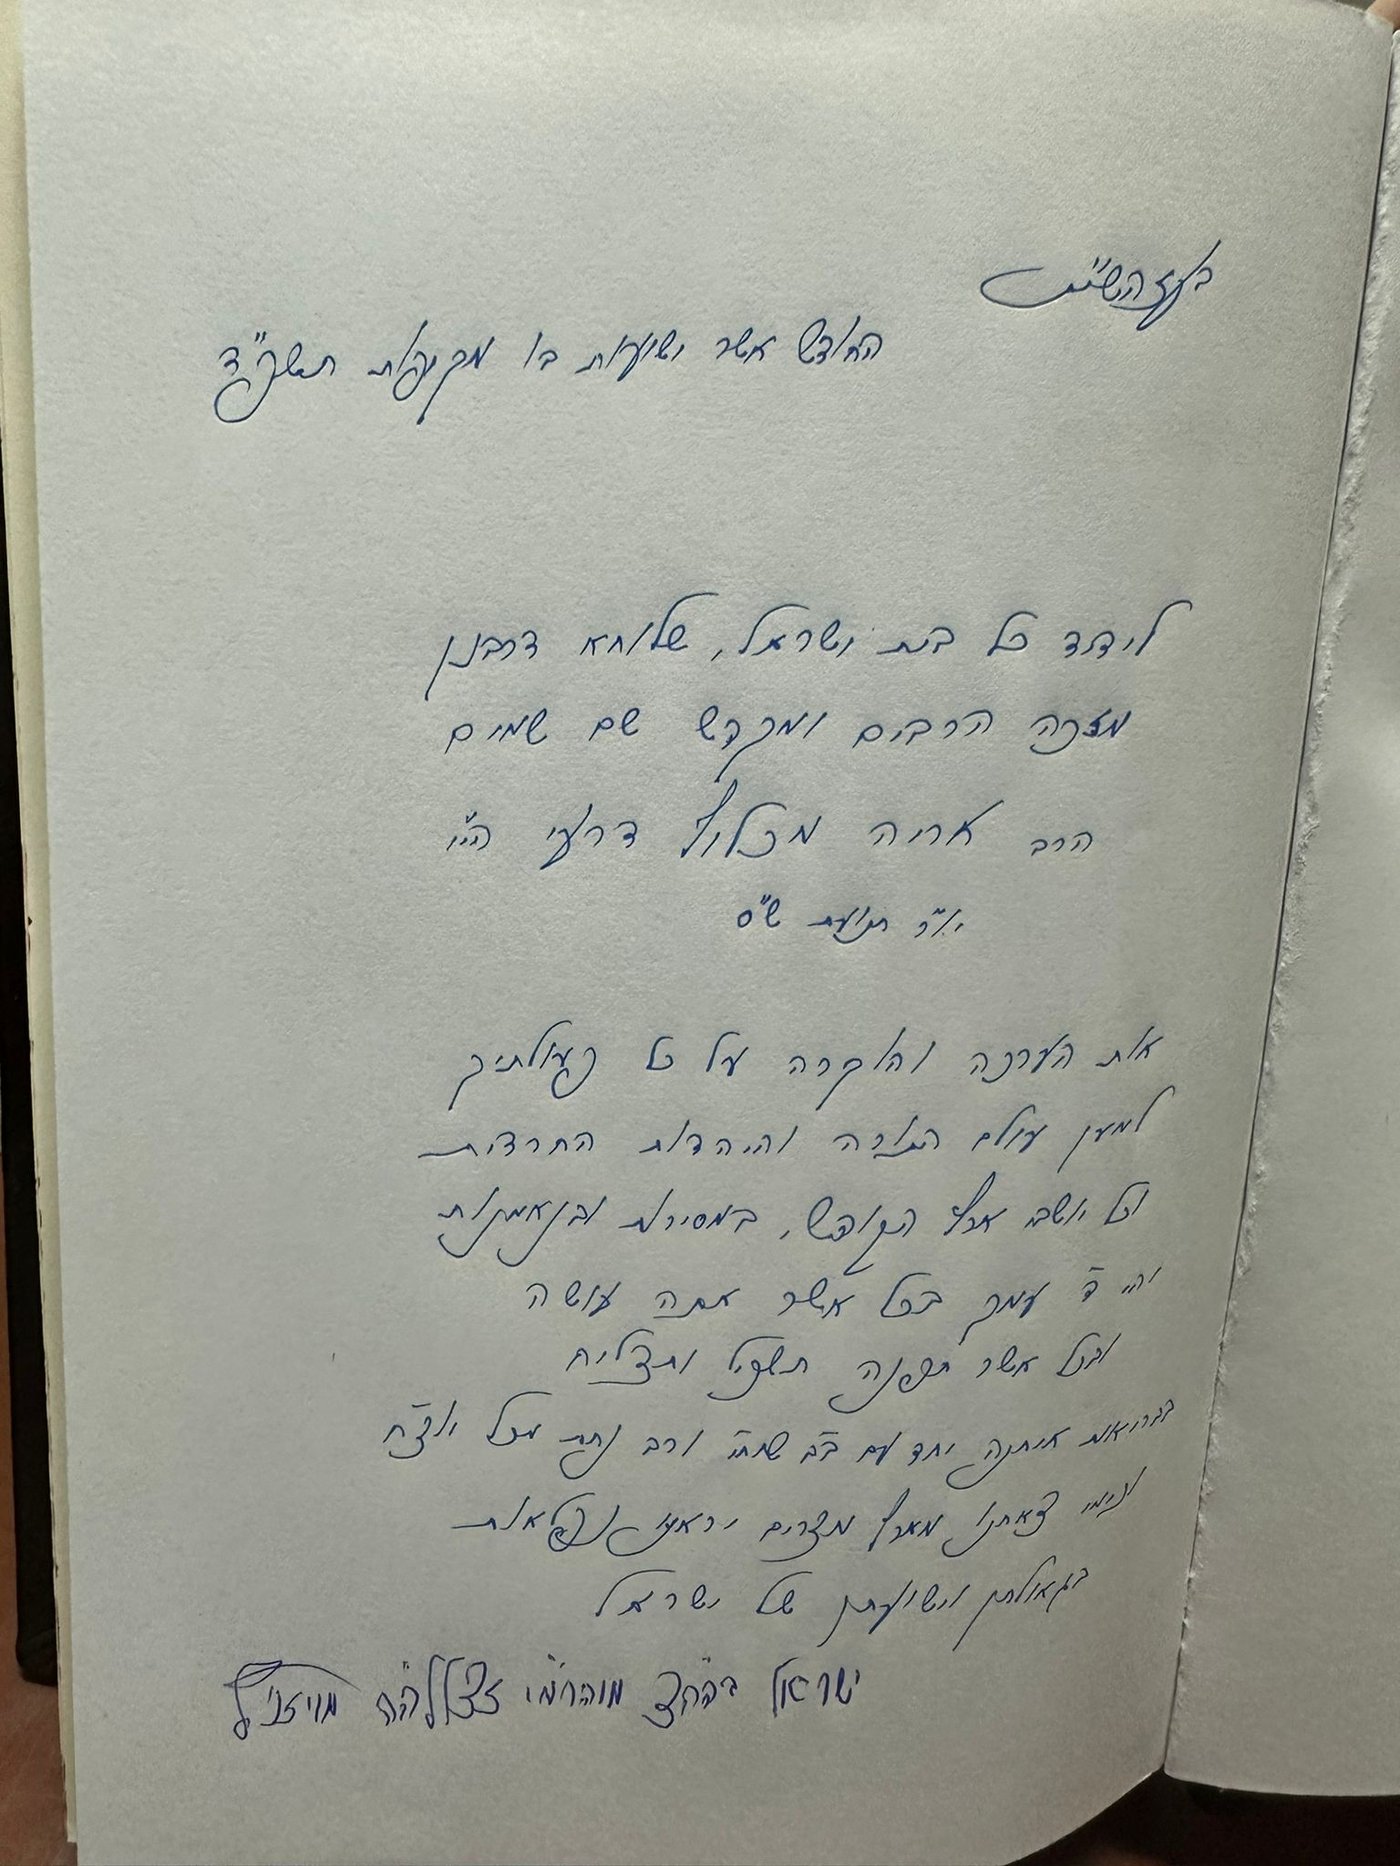 בעזהשי"ת
החודש אשר ישועות בו מקיפות תשפ"ד
לידיד כל בית ישראל, שלוחא דרבנן
מזכה הרבים ומקדש שם שמים
הרב אריה מכלוף דרעי הי"ו
יו"ר תנועת ש"ס
את הערכה והוקרה על כל פעולתיך
למען עולם התורה והיהדות החרדית
וכל יושבי ארץ הקודש, במסירות ובנאמנות
ויהי ה' עמך בכל אשר אתה עושה
ובכל אשר תפנה תשכיל ותצליח
בבריאות איתנה יחד עם ב"ב שיחי' ורב נחת מכל יוצ"ח
וכימי צאתנו מארץ מצרים יראנו נפלאות
בגאולתן וישועתן של ישראל
ישראל בהה"צ מוהרמ"י זצללה"ה מויזניץ